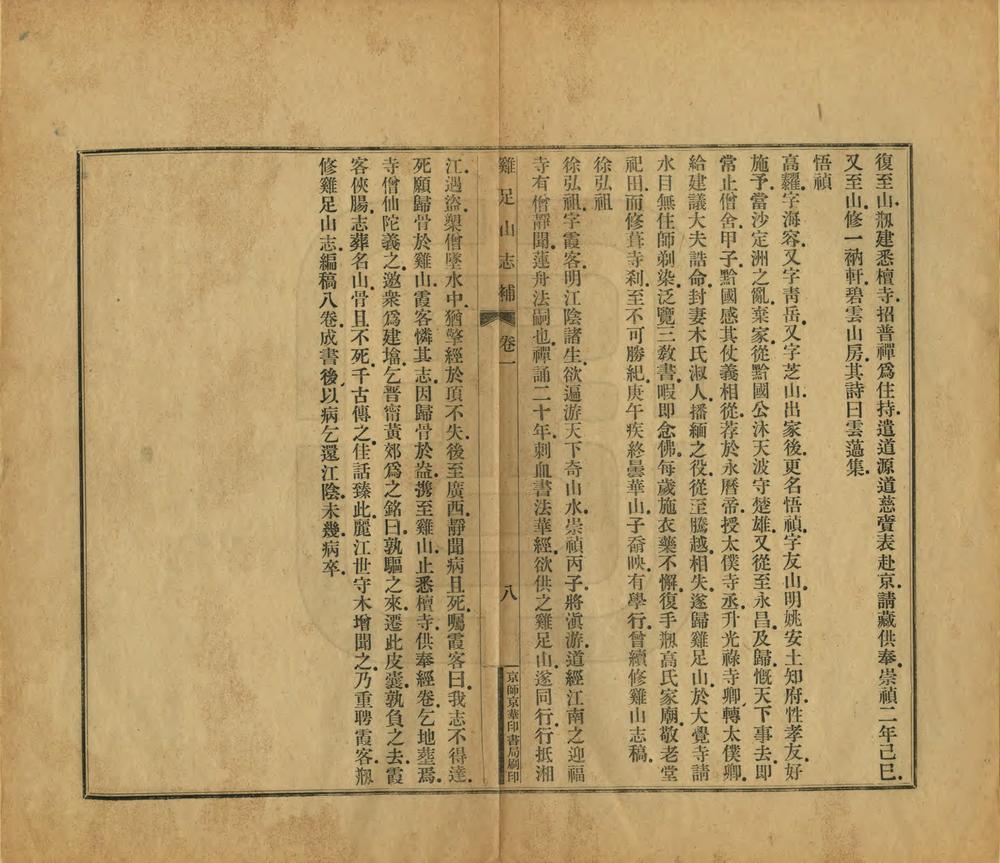 復至山剏建悉檀寺招普禪爲住持遣道源道慈賫表赴京請藏供奉崇禎二年己巳
又至山修一衲軒碧雲山房其詩曰雲薖集
悟禎
高耀字海容又字靑岳又字芝山出家後更名悟禎字友山明姚安土知府性孝友好
施予當沙定洲之亂棄家從黔國公沐天波守楚雄又從至永昌及歸慨天下事去即
常止僧舍甲子黔國感其仗義相從荐於永曆帝授太僕寺丞升光祿寺卿轉太僕卿
給建議大夫誥命封妻木氏淑人播緬之役從至騰越相失遂歸雞足山於大覺寺請
水目無住師剃染泛覽三敎書暇即念佛每歲施衣藥不懈復手剏高氏家廟敬老堂
祀田而修葺寺刹至不可勝紀庚午疾終曇華山子奣映有學行曾續修雞山志稿
徐弘祖
徐弘祖字霞客明江陰諸生欲遍游天下奇山水崇禎丙子將滇游道經江南之迎福
寺有僧靜聞蓮舟法嗣也禪誦二十年刺血書法華經欲供之雞足山遂同行行抵湘
雞足山志補 卷一 八 京師京華印書局刷印
江遇盜槊僧墜水中猶擎經於頂不失後至廣西靜聞病且死囑霞客曰我志不得達
死願歸骨於雞山霞客憐其志因歸骨於盆携至雞山止悉檀寺供奉經卷乞地塟焉
寺僧仙陀義之邀衆爲建墖乞晋甯黃郊爲之銘曰孰驅之來遷此皮囊孰負之去霞
客俠腸志葬名山骨且不死千古傳之佳話臻此麗江世守木增聞之乃重聘霞客剏
修雞足山志編稿八卷成書後以病乞還江陰未幾病卒